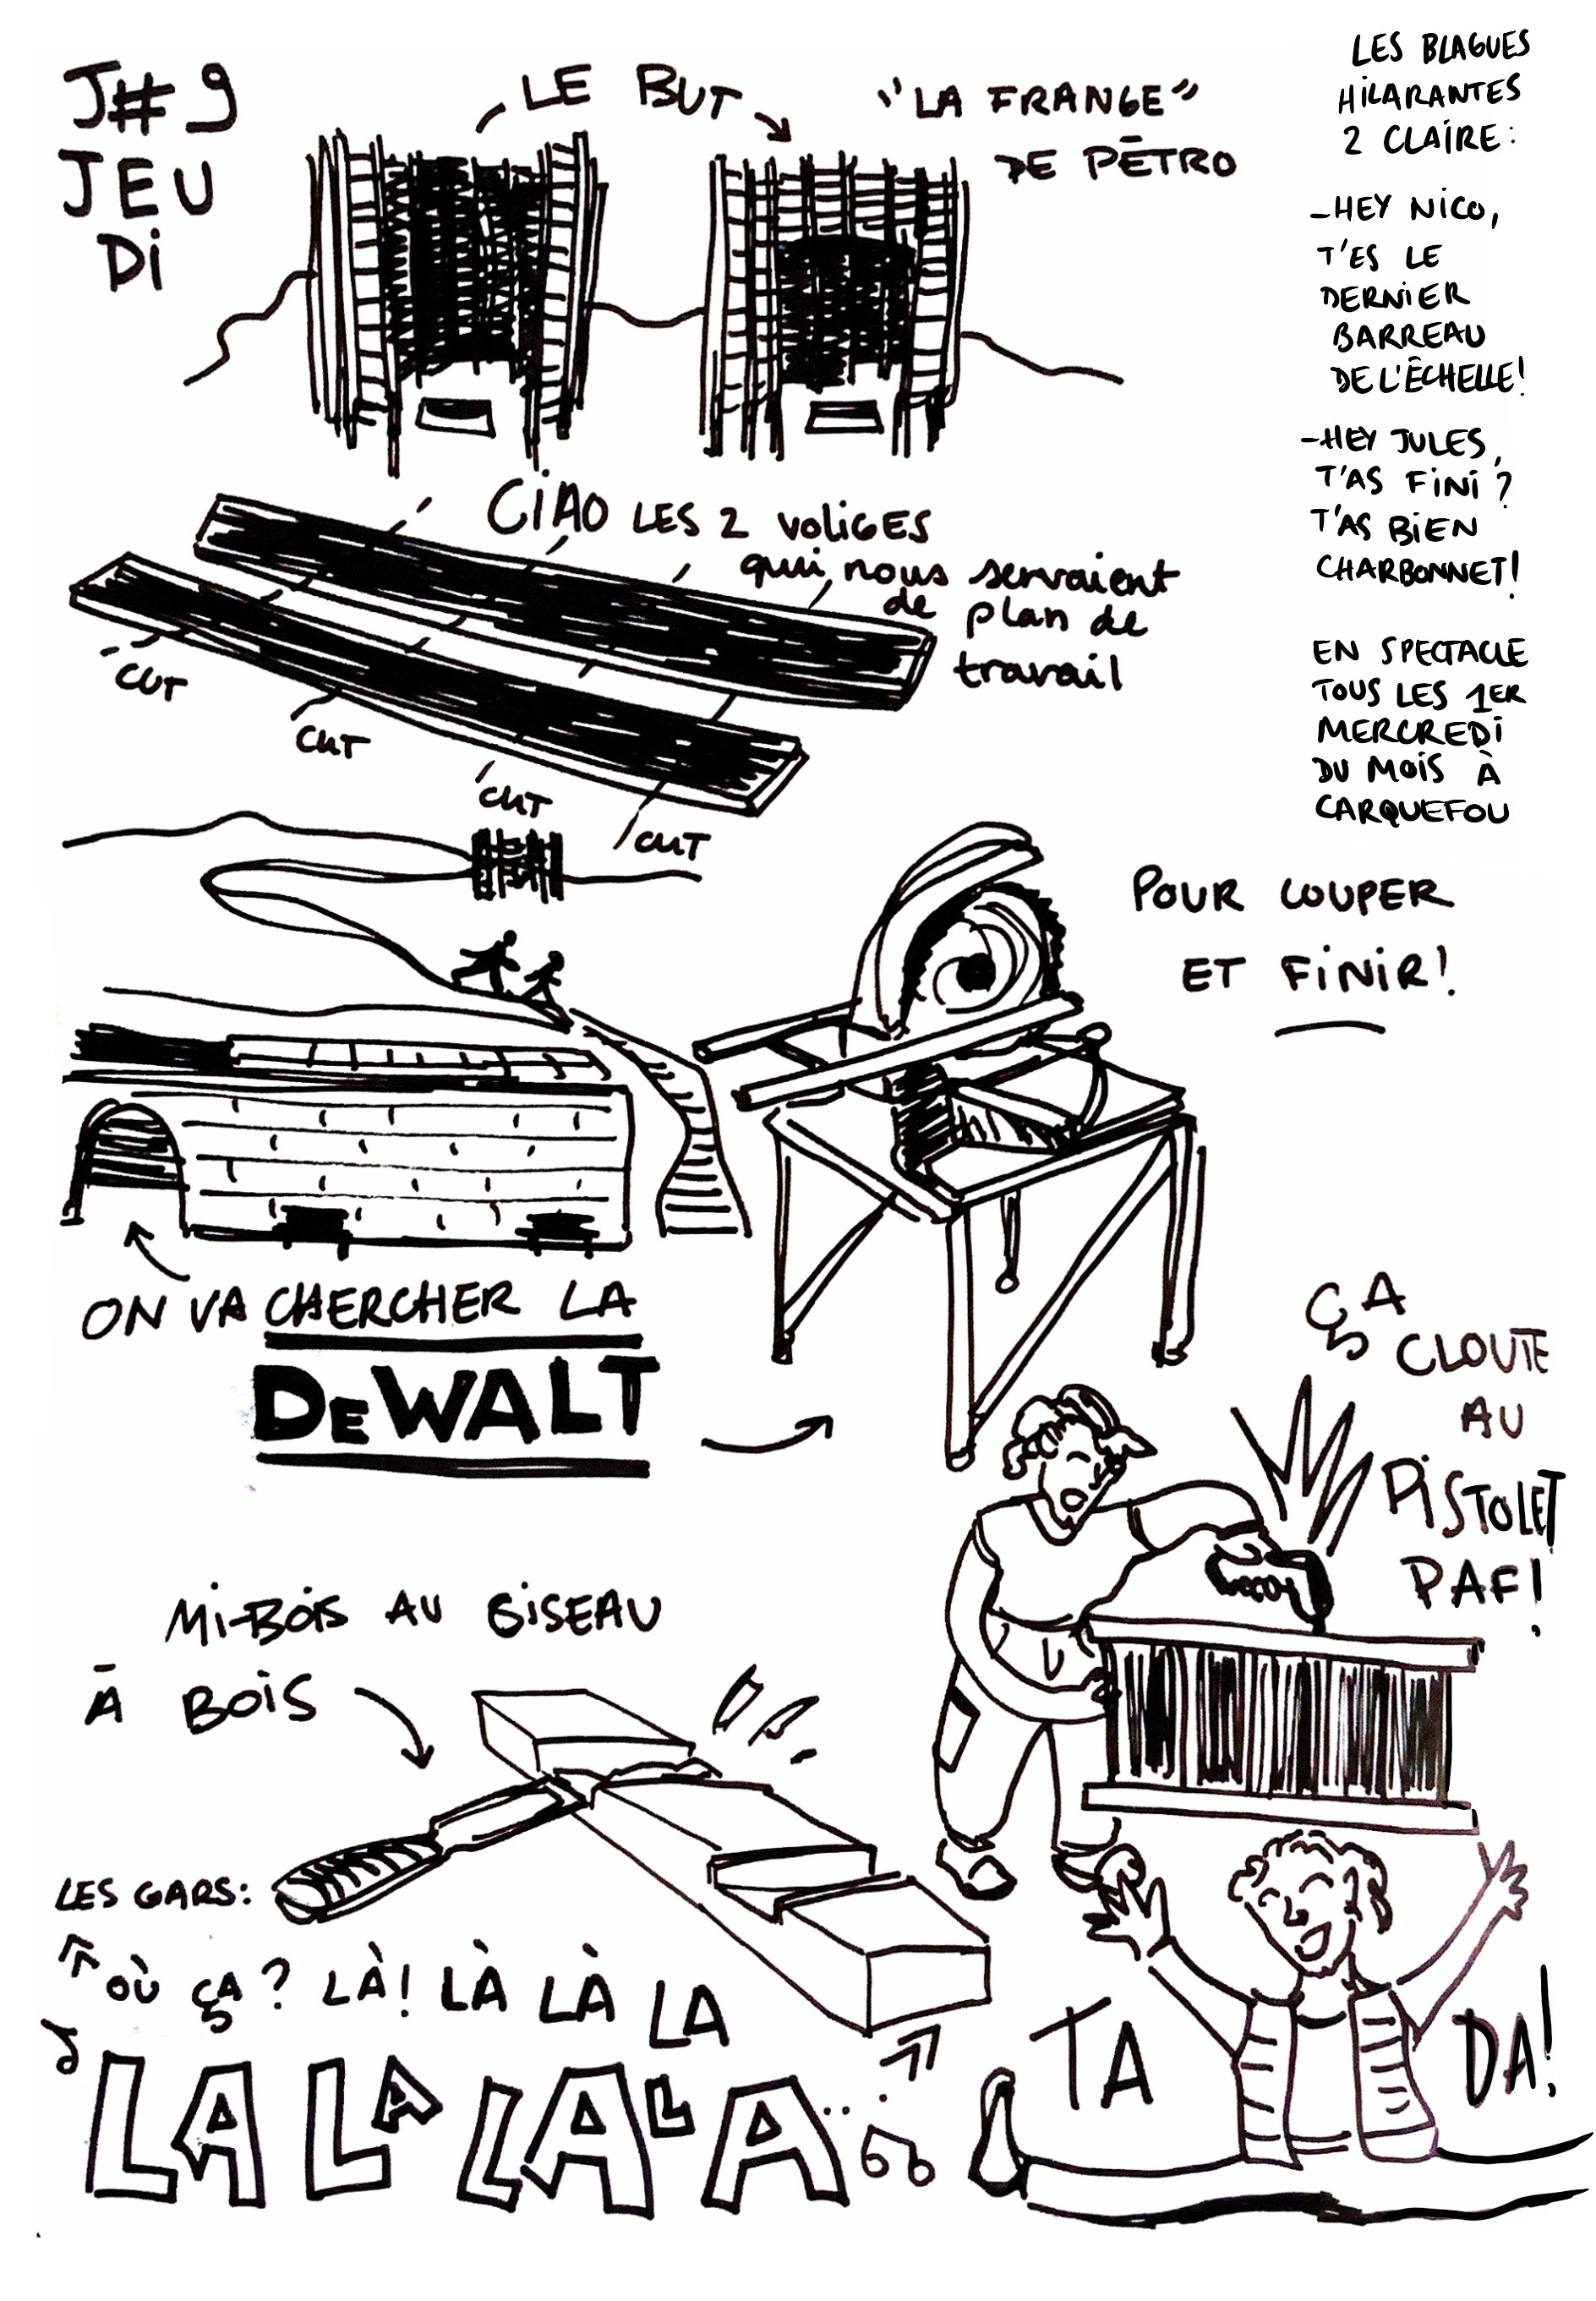 J#9
JEU
Di
LE BUT
"LA FRANGE"
DE PÉTRO
CiAO LES 2 VOLiGES
qui nous servaient
de plan de
travail
CUT
CUT
CUT
CUT
LES BLAGUES
HILARANTES
2 CLAIRE:
-HEY NICO,
T'ES LE
DERNIER
BARREAU
DE L'ÉCHELLE!
-HEY JULES,
T'AS FiNi?
T'AS BiEN
CHARBONNET!
EN SPECTACLE
TOUS LES 1ER
MERCREDI
DU MOIS À
CARQUEFOU
POUR COUPER
ET FiNiR!
ON VA CHERCHER LA
DeWALT
ÇA
CLOUTE
AU
PiSTOLET
PAF!
Mi-BOIS AU CiSEAU
À BOIS
LES GARS:
OÙ ÇA? LÀ! LÀ LÀ LA
LA LA LA LA
TA DA!